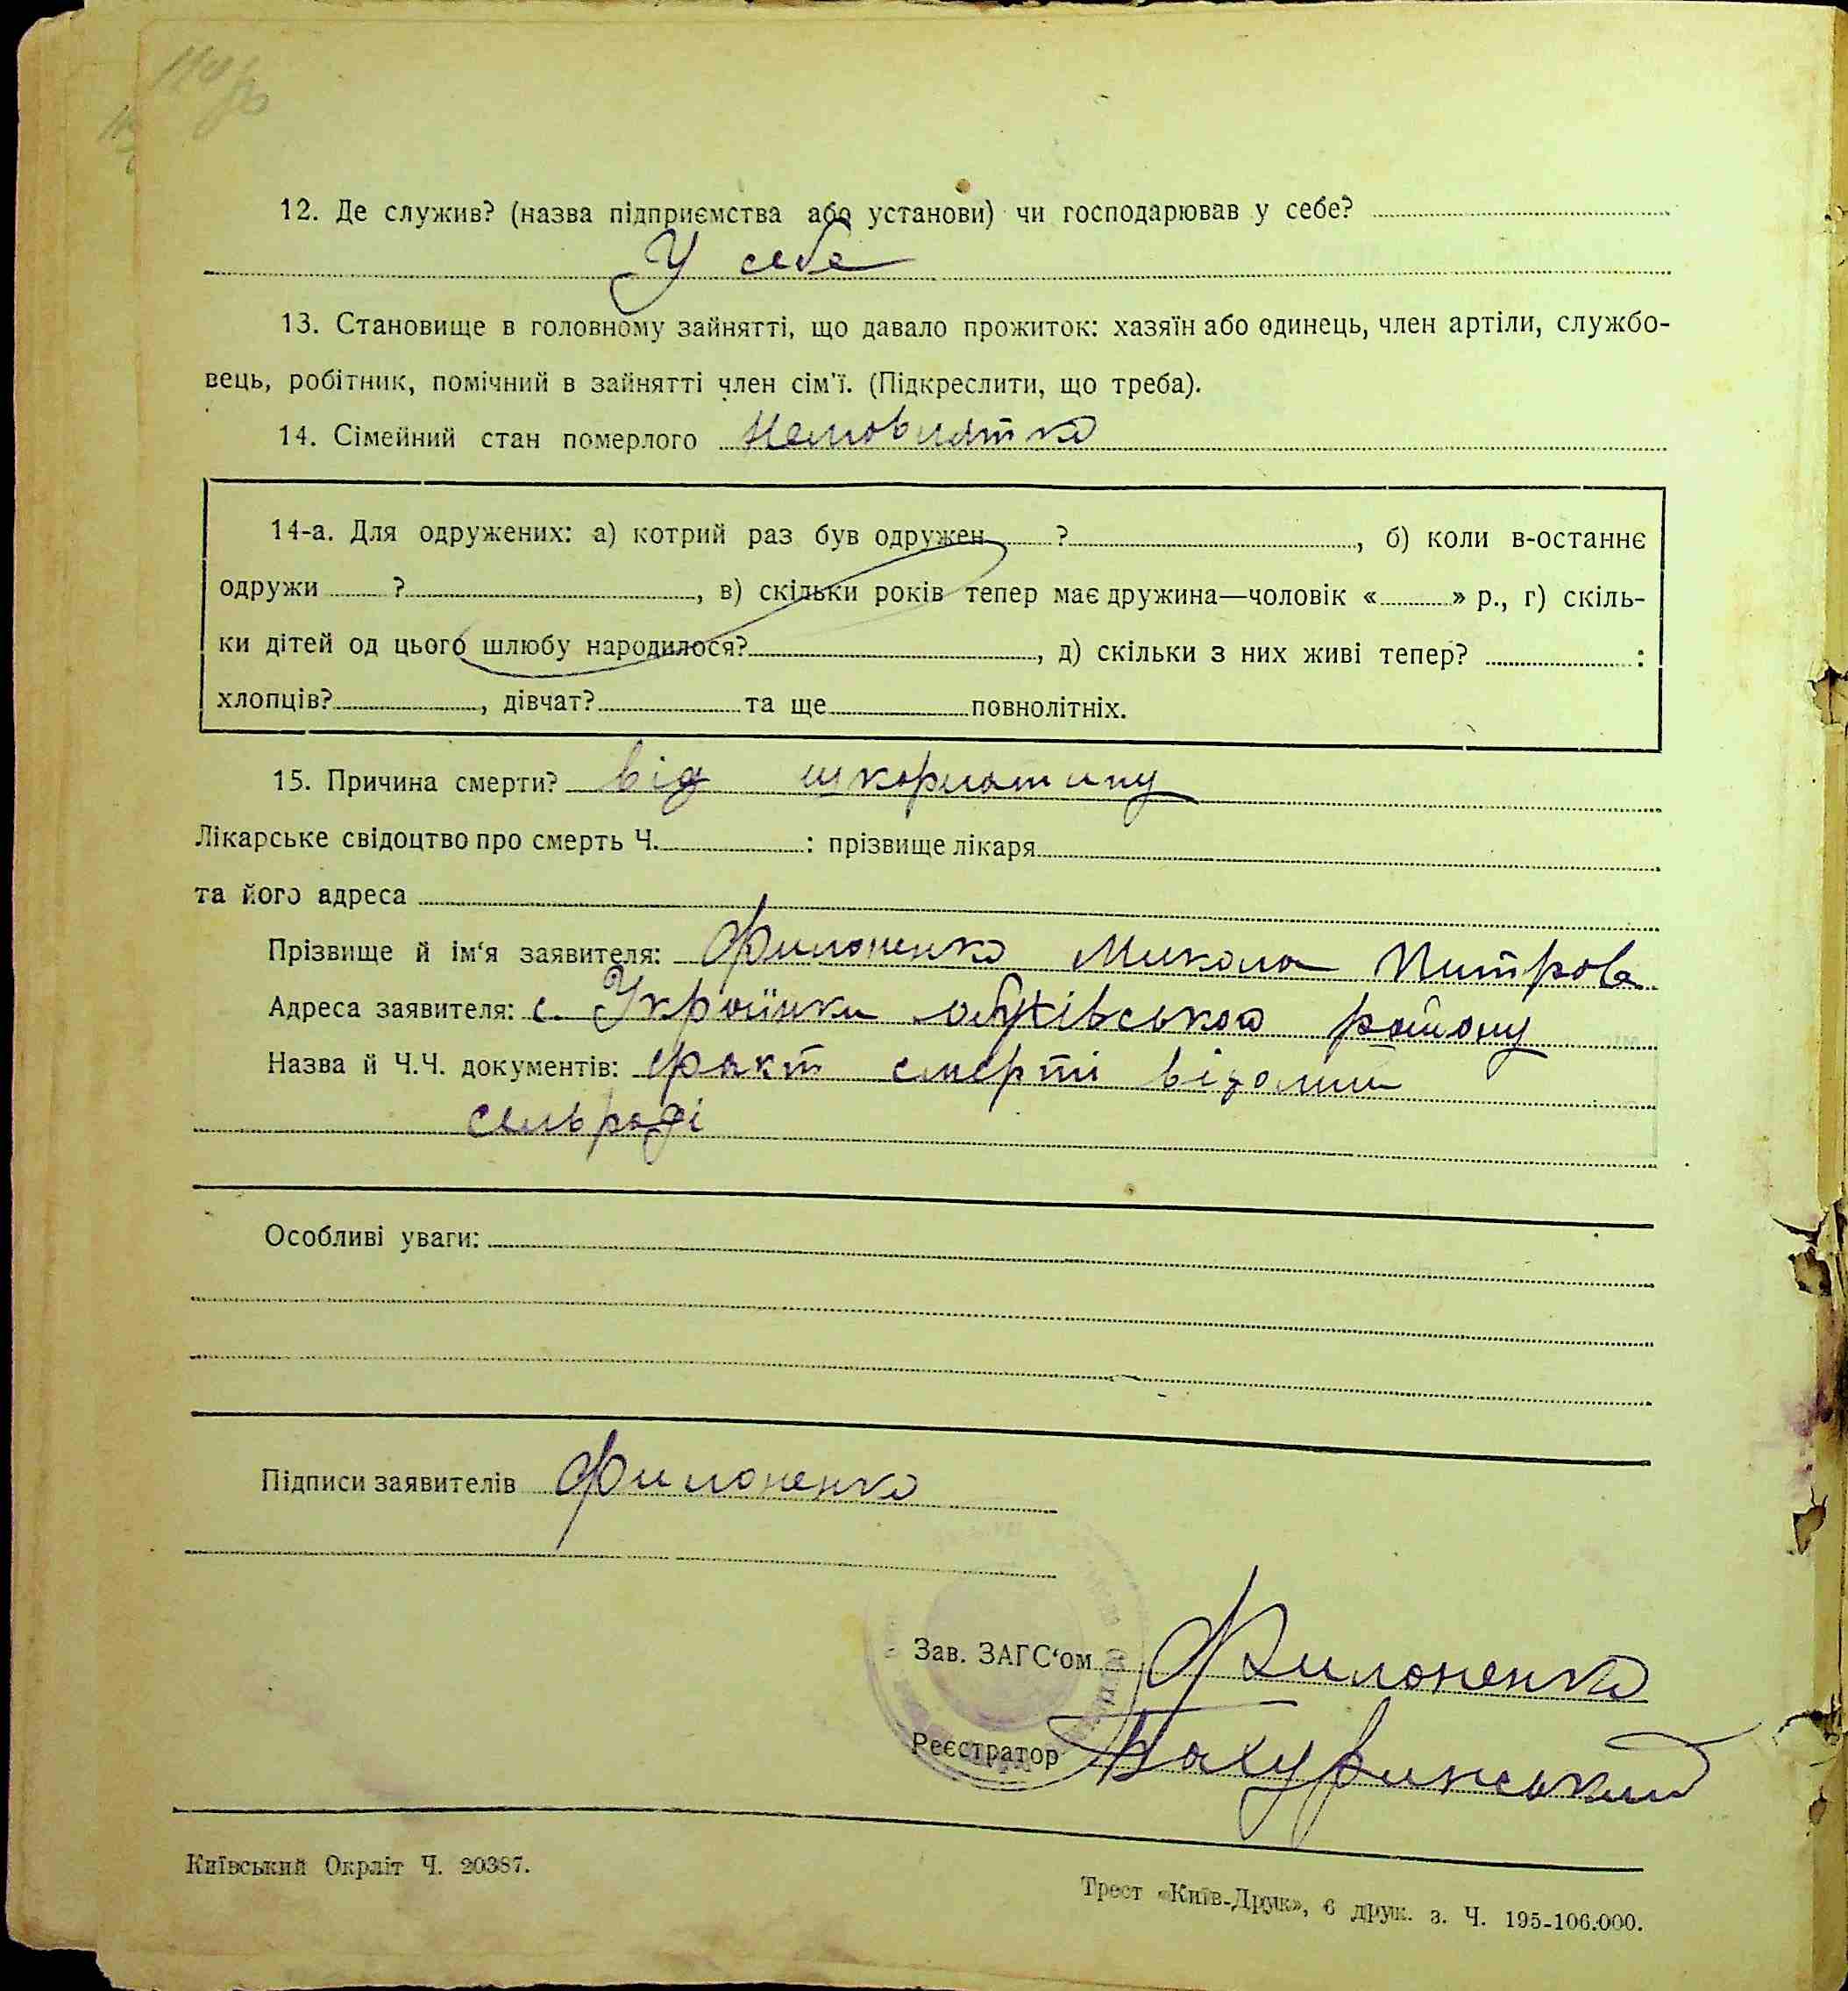 12. Де служив? (назва підприємства або установи) чи господарював у себе?
У себе
13. Становище в головному зайнятті, що давало прожиток: хазяїн або одинець, член артіли, службо-
вець, робітник, помічний в зайнятті член сім'ї. (Підкреслити, що треба).
14. Сімейний стан померлого Немовлятко
14-а. Для одружених: а) котрий раз був одружен ? , б) коли в-останнє
одружи ? , в) скільки років тепер має дружина—чоловік « » р., г) скіль-
ки дітей од цього шлюбу народилося? , д) скільки з них живі тепер? :
хлопців? , дівчат? та ще повнолітніх.
15. Причина смерти? від шкорлатину
Лікарське свідоцтво про смерть Ч. : прізвище лікаря
та його адреса
Прізвище й ім'я заявителя: Филоненко Микола Питрова
Адреса заявителя: с. Українки обухівського району
Назва й Ч.Ч. документів: факт смерті відомий
сельраді
Особливі уваги:
Підписи заявителів Филоненко
Зав. ЗАГС'ом Филоненко
Реєстратор
Київський Окрліт Ч. 20387.
Трест «Київ-Друк», 6 друк. з. Ч. 195-106.000.